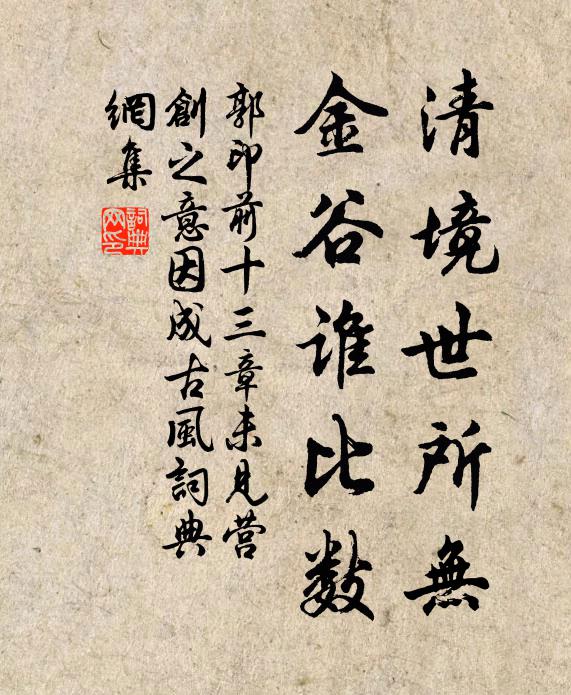 清境世所無
金谷谁比数
郭印前十三章未見营
創之意因成古風詞典
網集
詞典
网印